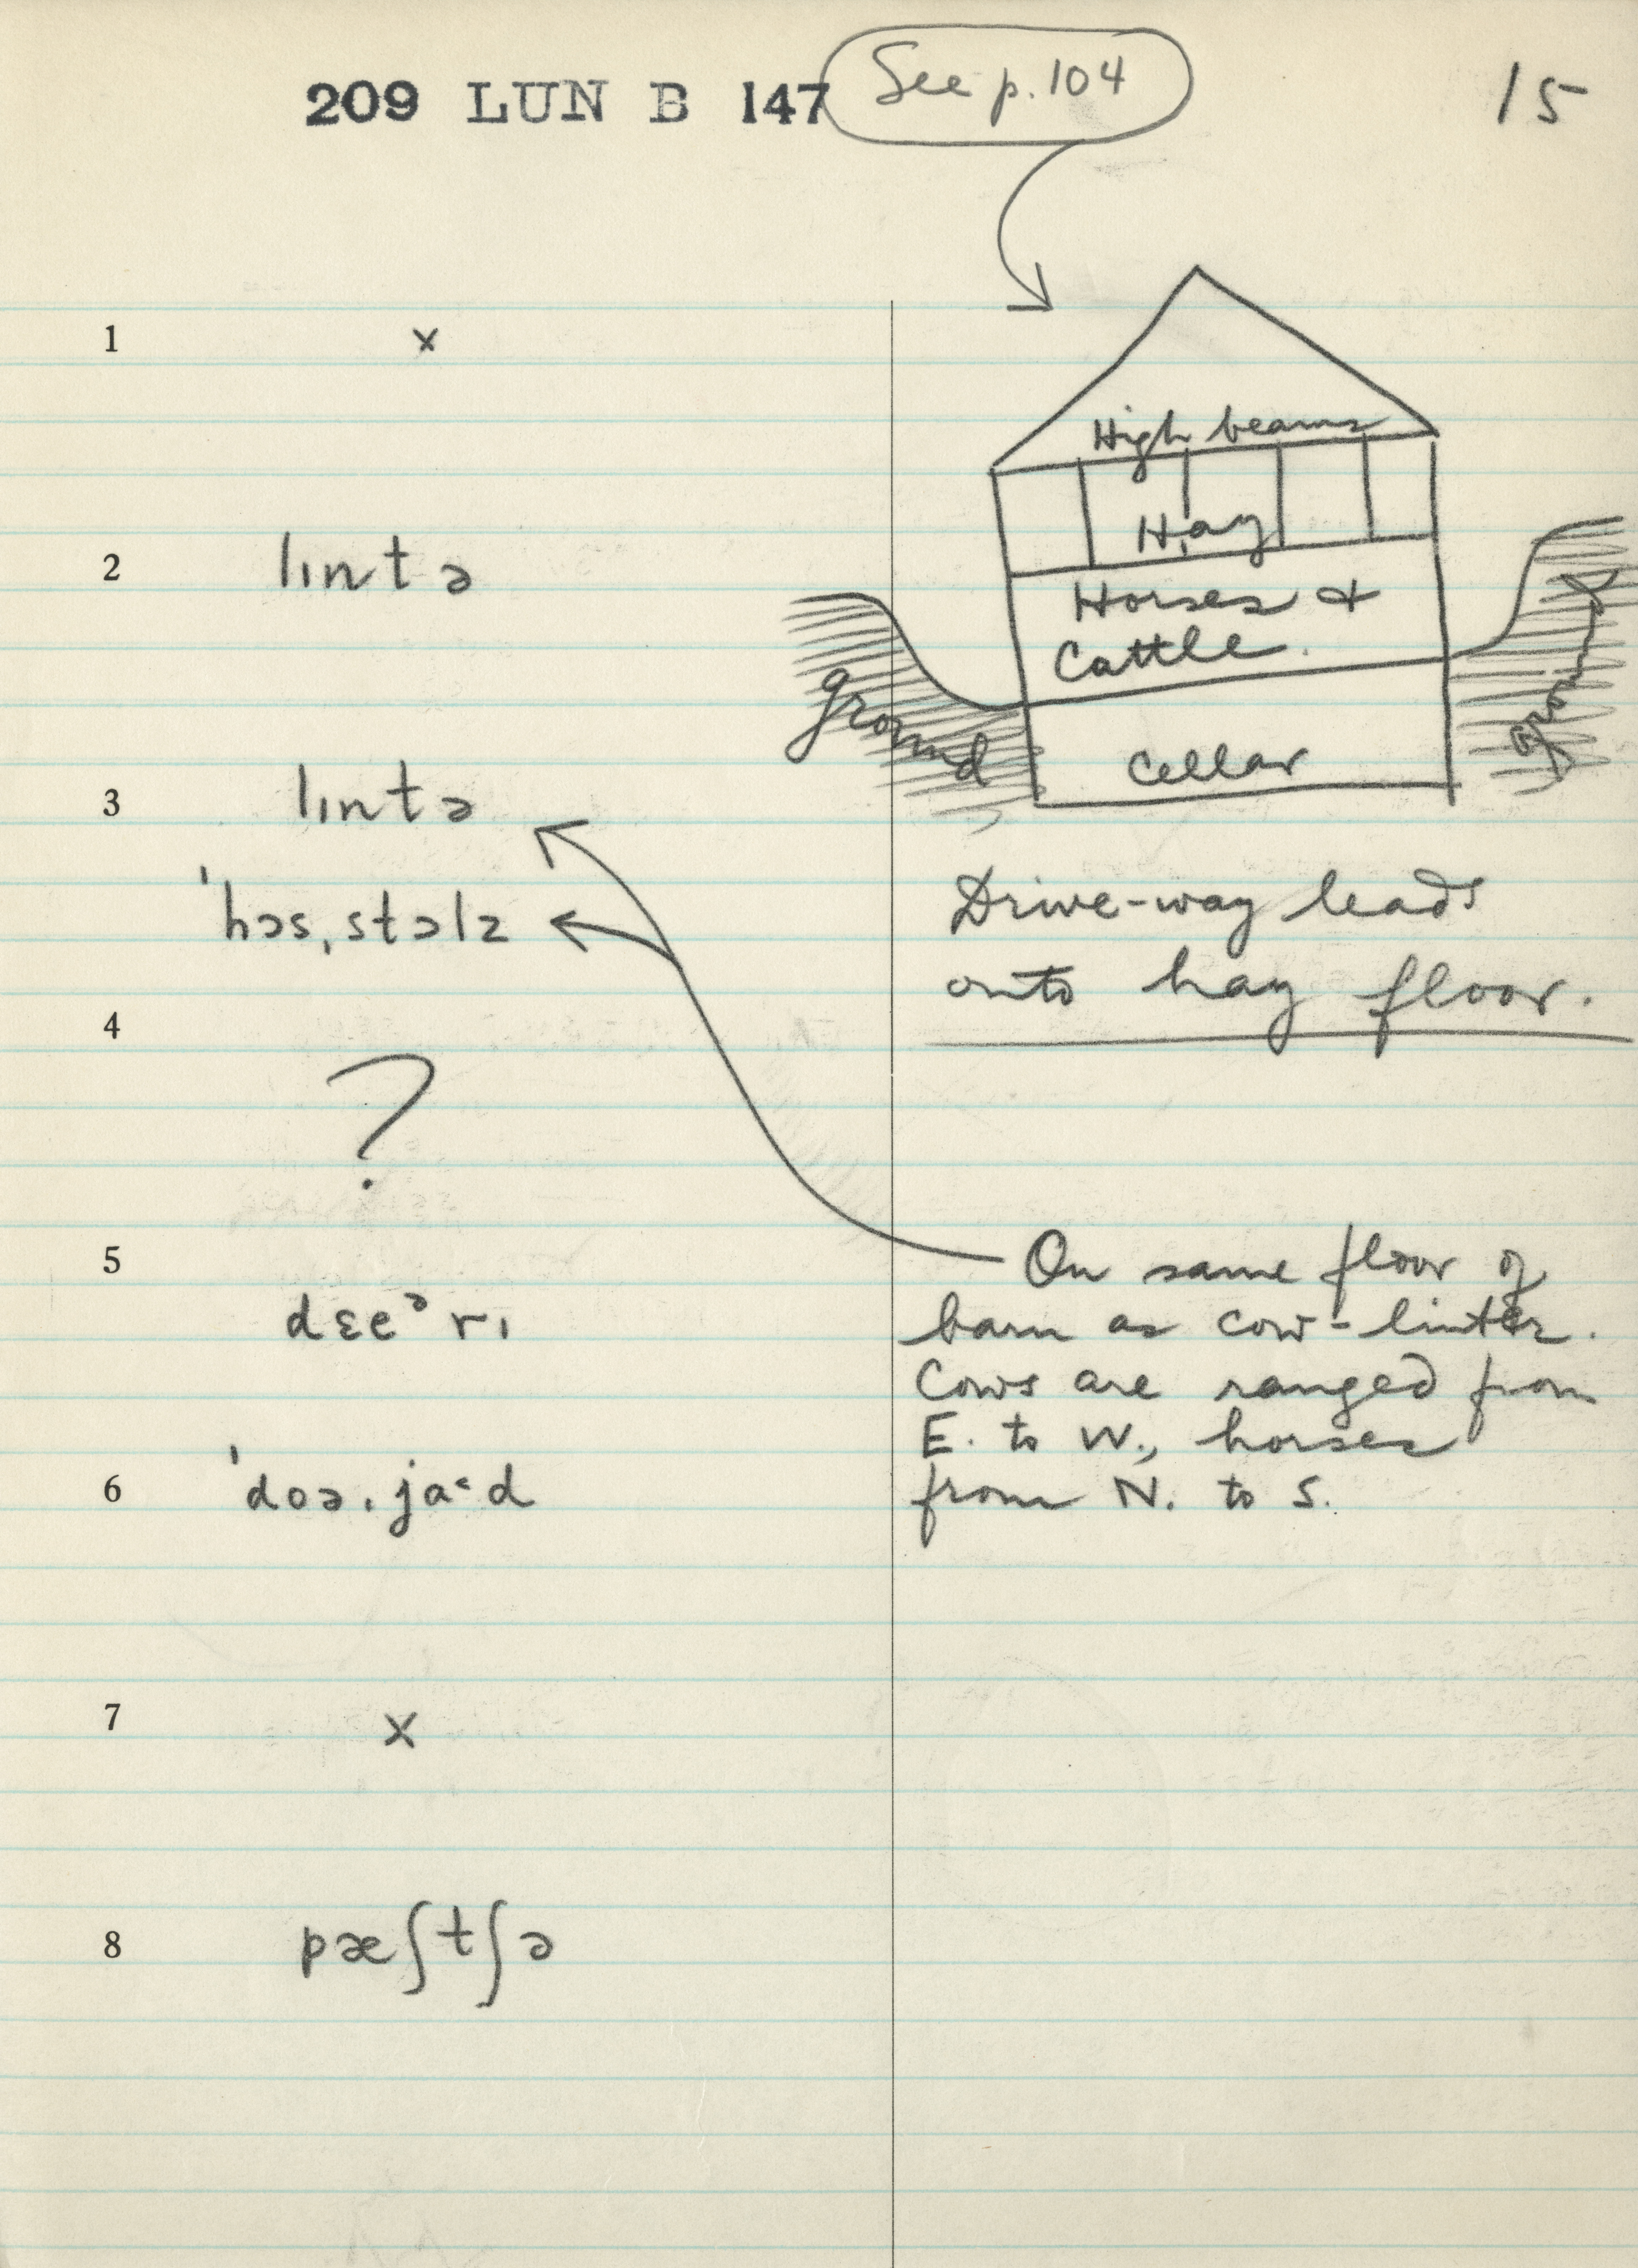 209 LUN B 147
See p. 104
15
1 x
High beams
Hay
2 lɪntə
Horses &
Cattle.
ground
ground
Cellar
3 lɪntə
'hɔs,stɔlz
Drive-way leads
onto hay floor.
4 ?
5 dɛeᵊrɪ
On same floor of
barn as cow-linter.
Cows are ranged from
E. to W., horses
from N. to S.
6 'doə,ja˂d
7 x
8 pæʃtʃə